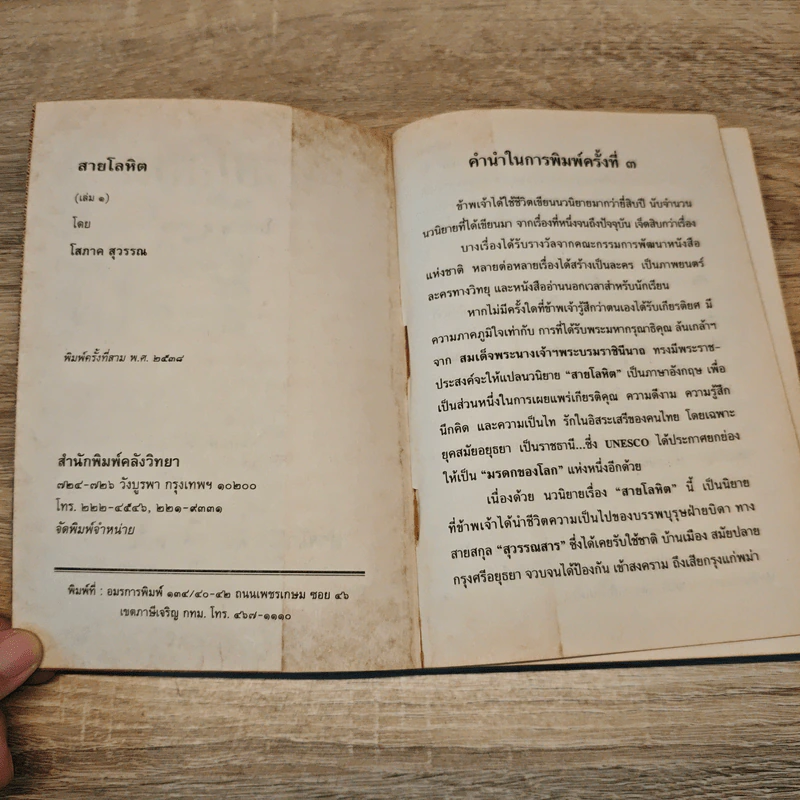 สายโลหิต
(เล่ม ๑)
โดย
โสภาค สุวรรณ
พิมพ์ครั้งที่สาม พ.ศ. ๒๕๓๘
สำนักพิมพ์คลังวิทยา
๗๒๔-๗๒๖ วังบูรพา กรุงเทพฯ ๑๐๒๐๐
โทร. ๒๒๒-๔๕๔๖, ๒๒๑-๙๓๓๑
จัดพิมพ์จำหน่าย
พิมพ์ที่ : อมรการพิมพ์ ๑๓๔/๔๐-๔๒ ถนนเพชรเกษม ซอย ๔๖
เขตภาษีเจริญ กทม. โทร. ๔๖๗-๑๑๑๐
คำนำในการพิมพ์ครั้งที่ ๓
ข้าพเจ้าได้ใช้ชีวิตเขียนนวนิยายมากว่ายี่สิบปี นับจำนวน
นวนิยายที่ได้เขียนมา จากเรื่องที่หนึ่งจนถึงปัจจุบัน เจ็ดสิบกว่าเรื่อง
บางเรื่องได้รับรางวัลจากคณะกรรมการพัฒนาหนังสือ
แห่งชาติ หลายต่อหลายเรื่องได้สร้างเป็นละคร เป็นภาพยนตร์
ละครทางวิทยุ และหนังสืออ่านนอกเวลาสำหรับนักเรียน
หากไม่มีครั้งใดที่ข้าพเจ้ารู้สึกว่าตนเองได้รับเกียรติยศ มี
ความภาคภูมิใจเท่ากับ การที่ได้รับพระมหากรุณาธิคุณ ล้นเกล้าฯ
จาก สมเด็จพระนางเจ้าฯพระบรมราชินีนาถ ทรงมีพระราช-
ประสงค์จะให้แปลนวนิยาย “สายโลหิต” เป็นภาษาอังกฤษ เพื่อ
เป็นส่วนหนึ่งในการเผยแพร่เกียรติคุณ ความดีงาม ความรู้สึก
นึกคิด และความเป็นไท รักในอิสระเสรีของคนไทย โดยเฉพาะ
ยุคสมัยอยุธยา เป็นราชธานี...ซึ่ง UNESCO ได้ประกาศยกย่อง
ให้เป็น “มรดกของโลก” แห่งหนึ่งอีกด้วย
เนื่องด้วย นวนิยายเรื่อง “สายโลหิต” นี้ เป็นนิยาย
ที่ข้าพเจ้าได้นำชีวิตความเป็นไปของบรรพบุรุษฝ่ายบิดา ทาง
สายสกุล “สุวรรณสาร” ซึ่งได้เคยรับใช้ชาติ บ้านเมือง สมัยปลาย
กรุงศรีอยุธยา จวบจนได้ป้องกัน เข้าสงคราม ถึงเสียกรุงแก่พม่า